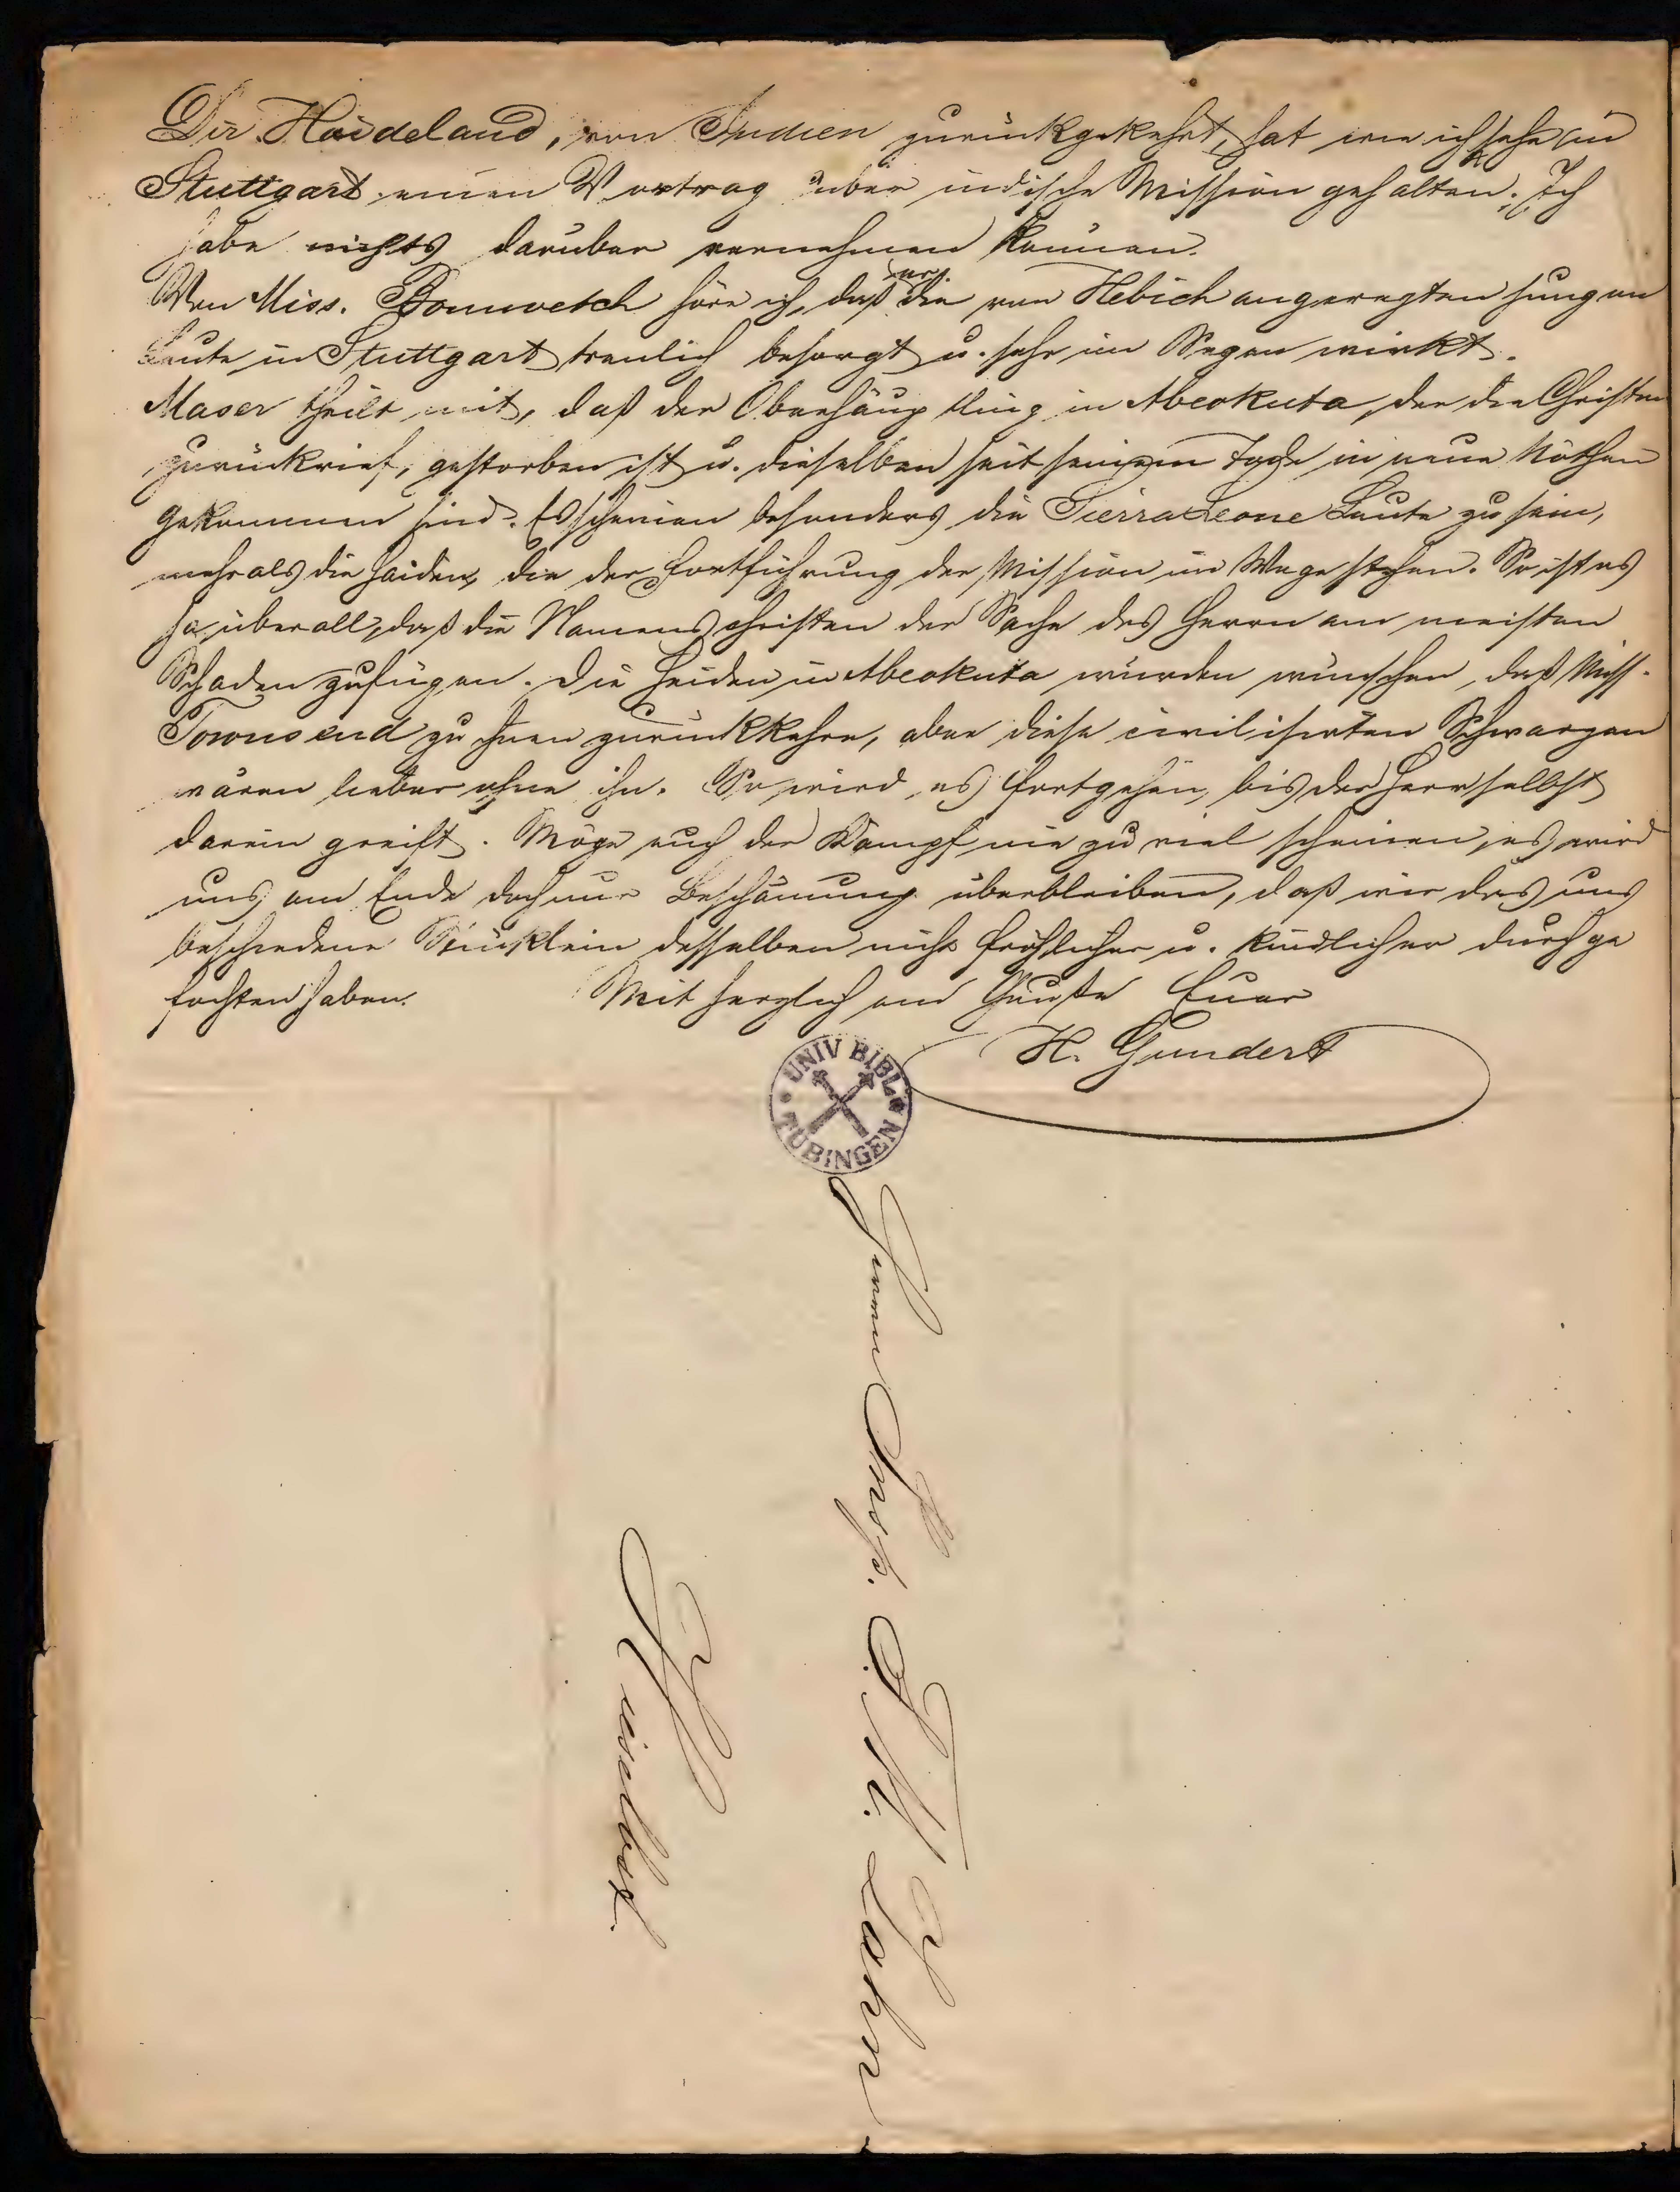 Dir. Hardeland, von Indien zurückgekehrt, hat wie ich sehe in
Stuttgart einen Vortrag über indische Mission gehalten. Ich
habe nichts darüber vernehmen können.
Von Miss. Bonwetsch höre ich, daß er die von Hebich angeregten jungen
Leute in Stuttgart treulich besorgt u. sehr im Segen wirkt.
Maser theilt mit, daß der Oberhäuptling in Abeokuta, der die Christen
zurückrief, gestorben ist u. dieselben seit seinem Tode in neue Nöthen
gekommen sind. Es scheinen besonders die Sierra Leone Leute zu sein,
mehr als die Heiden, die der Fortführung der Mission im Wege stehen. So ist es
ja überall, daß die Namenschristen der Sache des Herrn am meisten
Schaden zufügen. Die Heiden in Abeokuta würden wünschen, daß Miss.
Townsend zu ihnen zurückkehre, aber diese civilisirten Schwarzen
wären lieber ohne ihn. So wird es fortgehen, bis der Herr selbst
darein greift. Möge euch der Kampf nie zu viel scheinen, es wird
uns am Ende doch nur Beschämung überbleiben, daß wir das uns
beschiedene Stücklein desselben nicht fröhlicher u. kindlicher durchge
fochten haben. Mit herzlichem Gruße Euer
H. Gundert
UNIV. BIBL. TÜBINGEN
Herrn Miss.